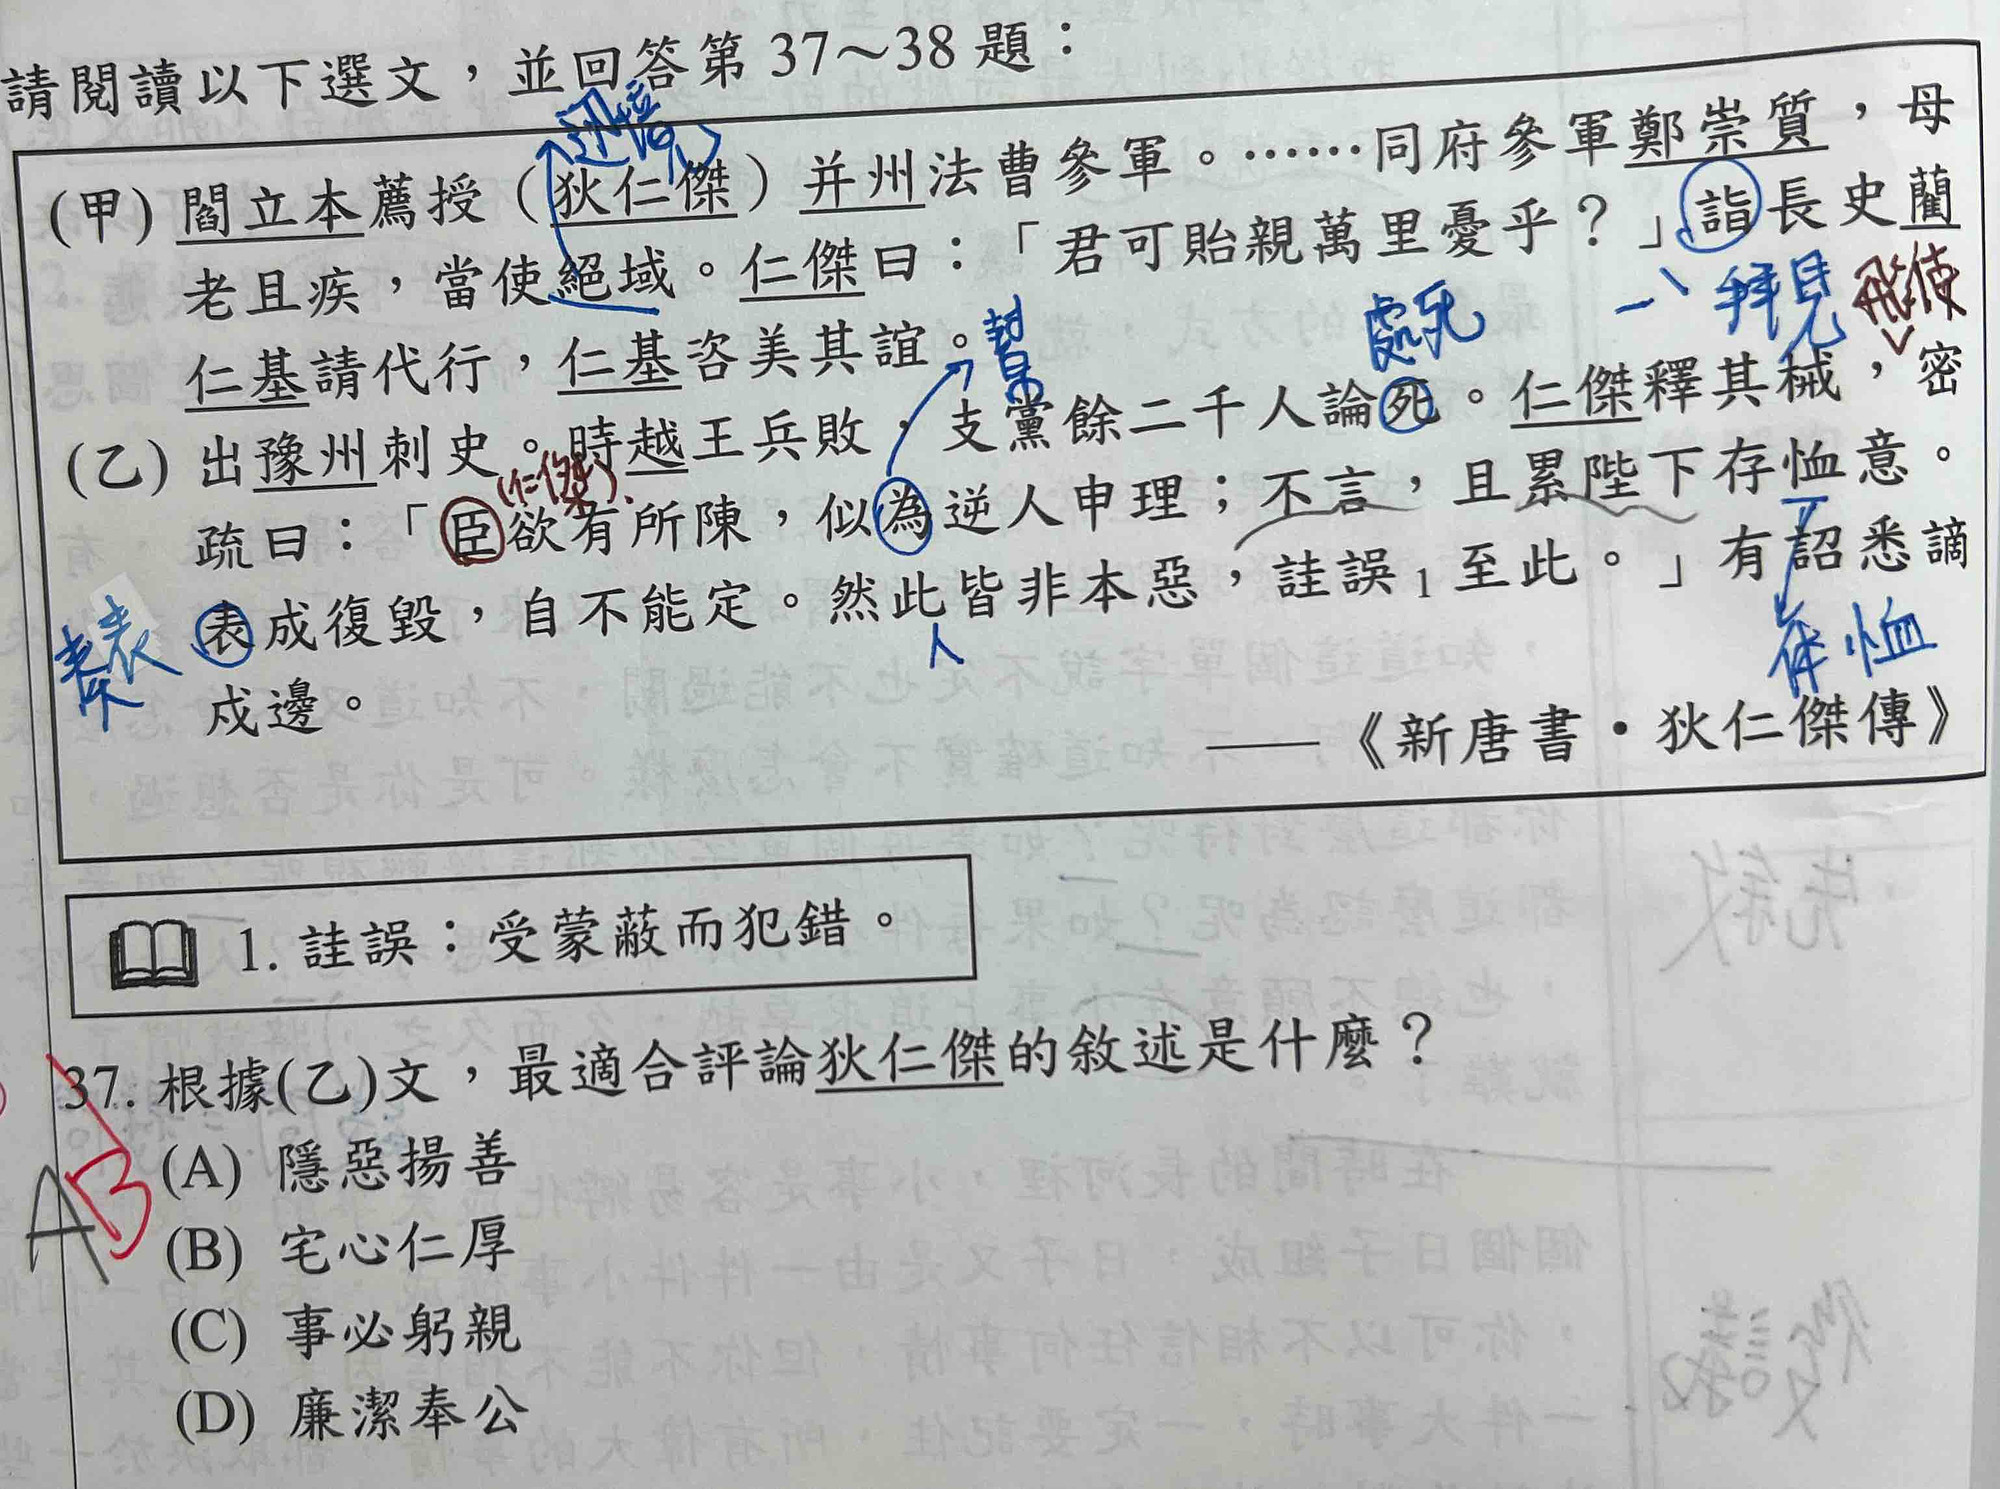 請閱讀以下選文，並回答第37～38題：
(甲) 閻立本薦授（狄仁傑）并州法曹參軍。……同府參軍鄭崇質，母
老且疾，當使絕域。仁傑曰：「君可貽親萬里憂乎？」詣長史藺
仁基請代行，仁基咨美其誼。
(乙) 出豫州刺史。時越王兵敗，支黨餘二千人論死。仁傑釋其械，密
疏曰：「臣欲有所陳，似為逆人申理；不言，且累陛下存恤意。
表成復毀，自不能定。然此皆非本惡，詿誤1至此。」有詔悉謫
戍邊。
——《新唐書•狄仁傑傳》
(仁傑)
幫
處死
拜見
人
體恤
1. 詿誤：受蒙蔽而犯錯。
37. 根據(乙)文，最適合評論狄仁傑的敘述是什麼？
A B
(A) 隱惡揚善
(B) 宅心仁厚
(C) 事必躬親
(D) 廉潔奉公